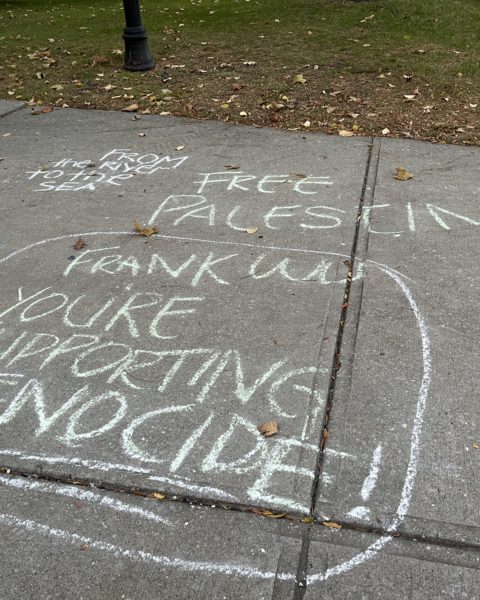 FROM
the RiveR
to the
SEA
FREE
PALESTIN
FRANK WU
YOU'RE
UPPORTING
ENOCIDE!